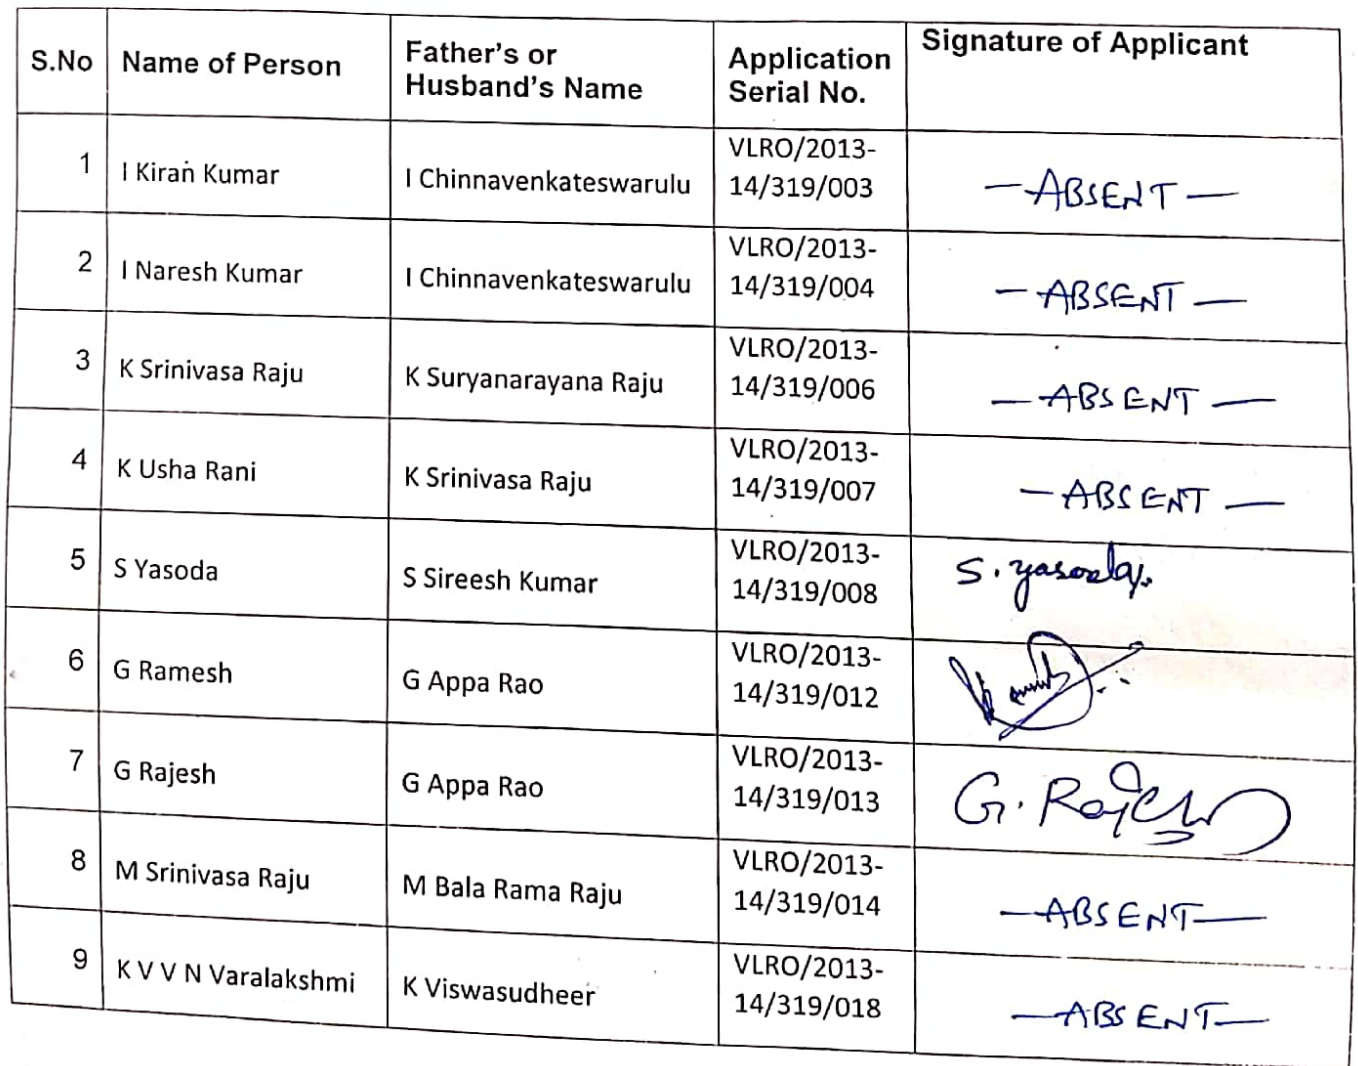 S.No Name of Person Father's or Husband's Name Application Serial No. Signature of Applicant
1 I Kiran Kumar I Chinnavenkateswarulu VLRO/2013-14/319/003 —ABSENT—
2 I Naresh Kumar I Chinnavenkateswarulu VLRO/2013-14/319/004 —ABSENT—
3 K Srinivasa Raju K Suryanarayana Raju VLRO/2013-14/319/006 —ABSENT—
4 K Usha Rani K Srinivasa Raju VLRO/2013-14/319/007 —ABSENT—
5 S Yasoda S Sireesh Kumar VLRO/2013-14/319/008 S. Yasoda
6 G Ramesh G Appa Rao VLRO/2013-14/319/012
7 G Rajesh G Appa Rao VLRO/2013-14/319/013 G. Rajesh
8 M Srinivasa Raju M Bala Rama Raju VLRO/2013-14/319/014 —ABSENT—
9 K V V N Varalakshmi K Viswasudheer VLRO/2013-14/319/018 —ABSENT—